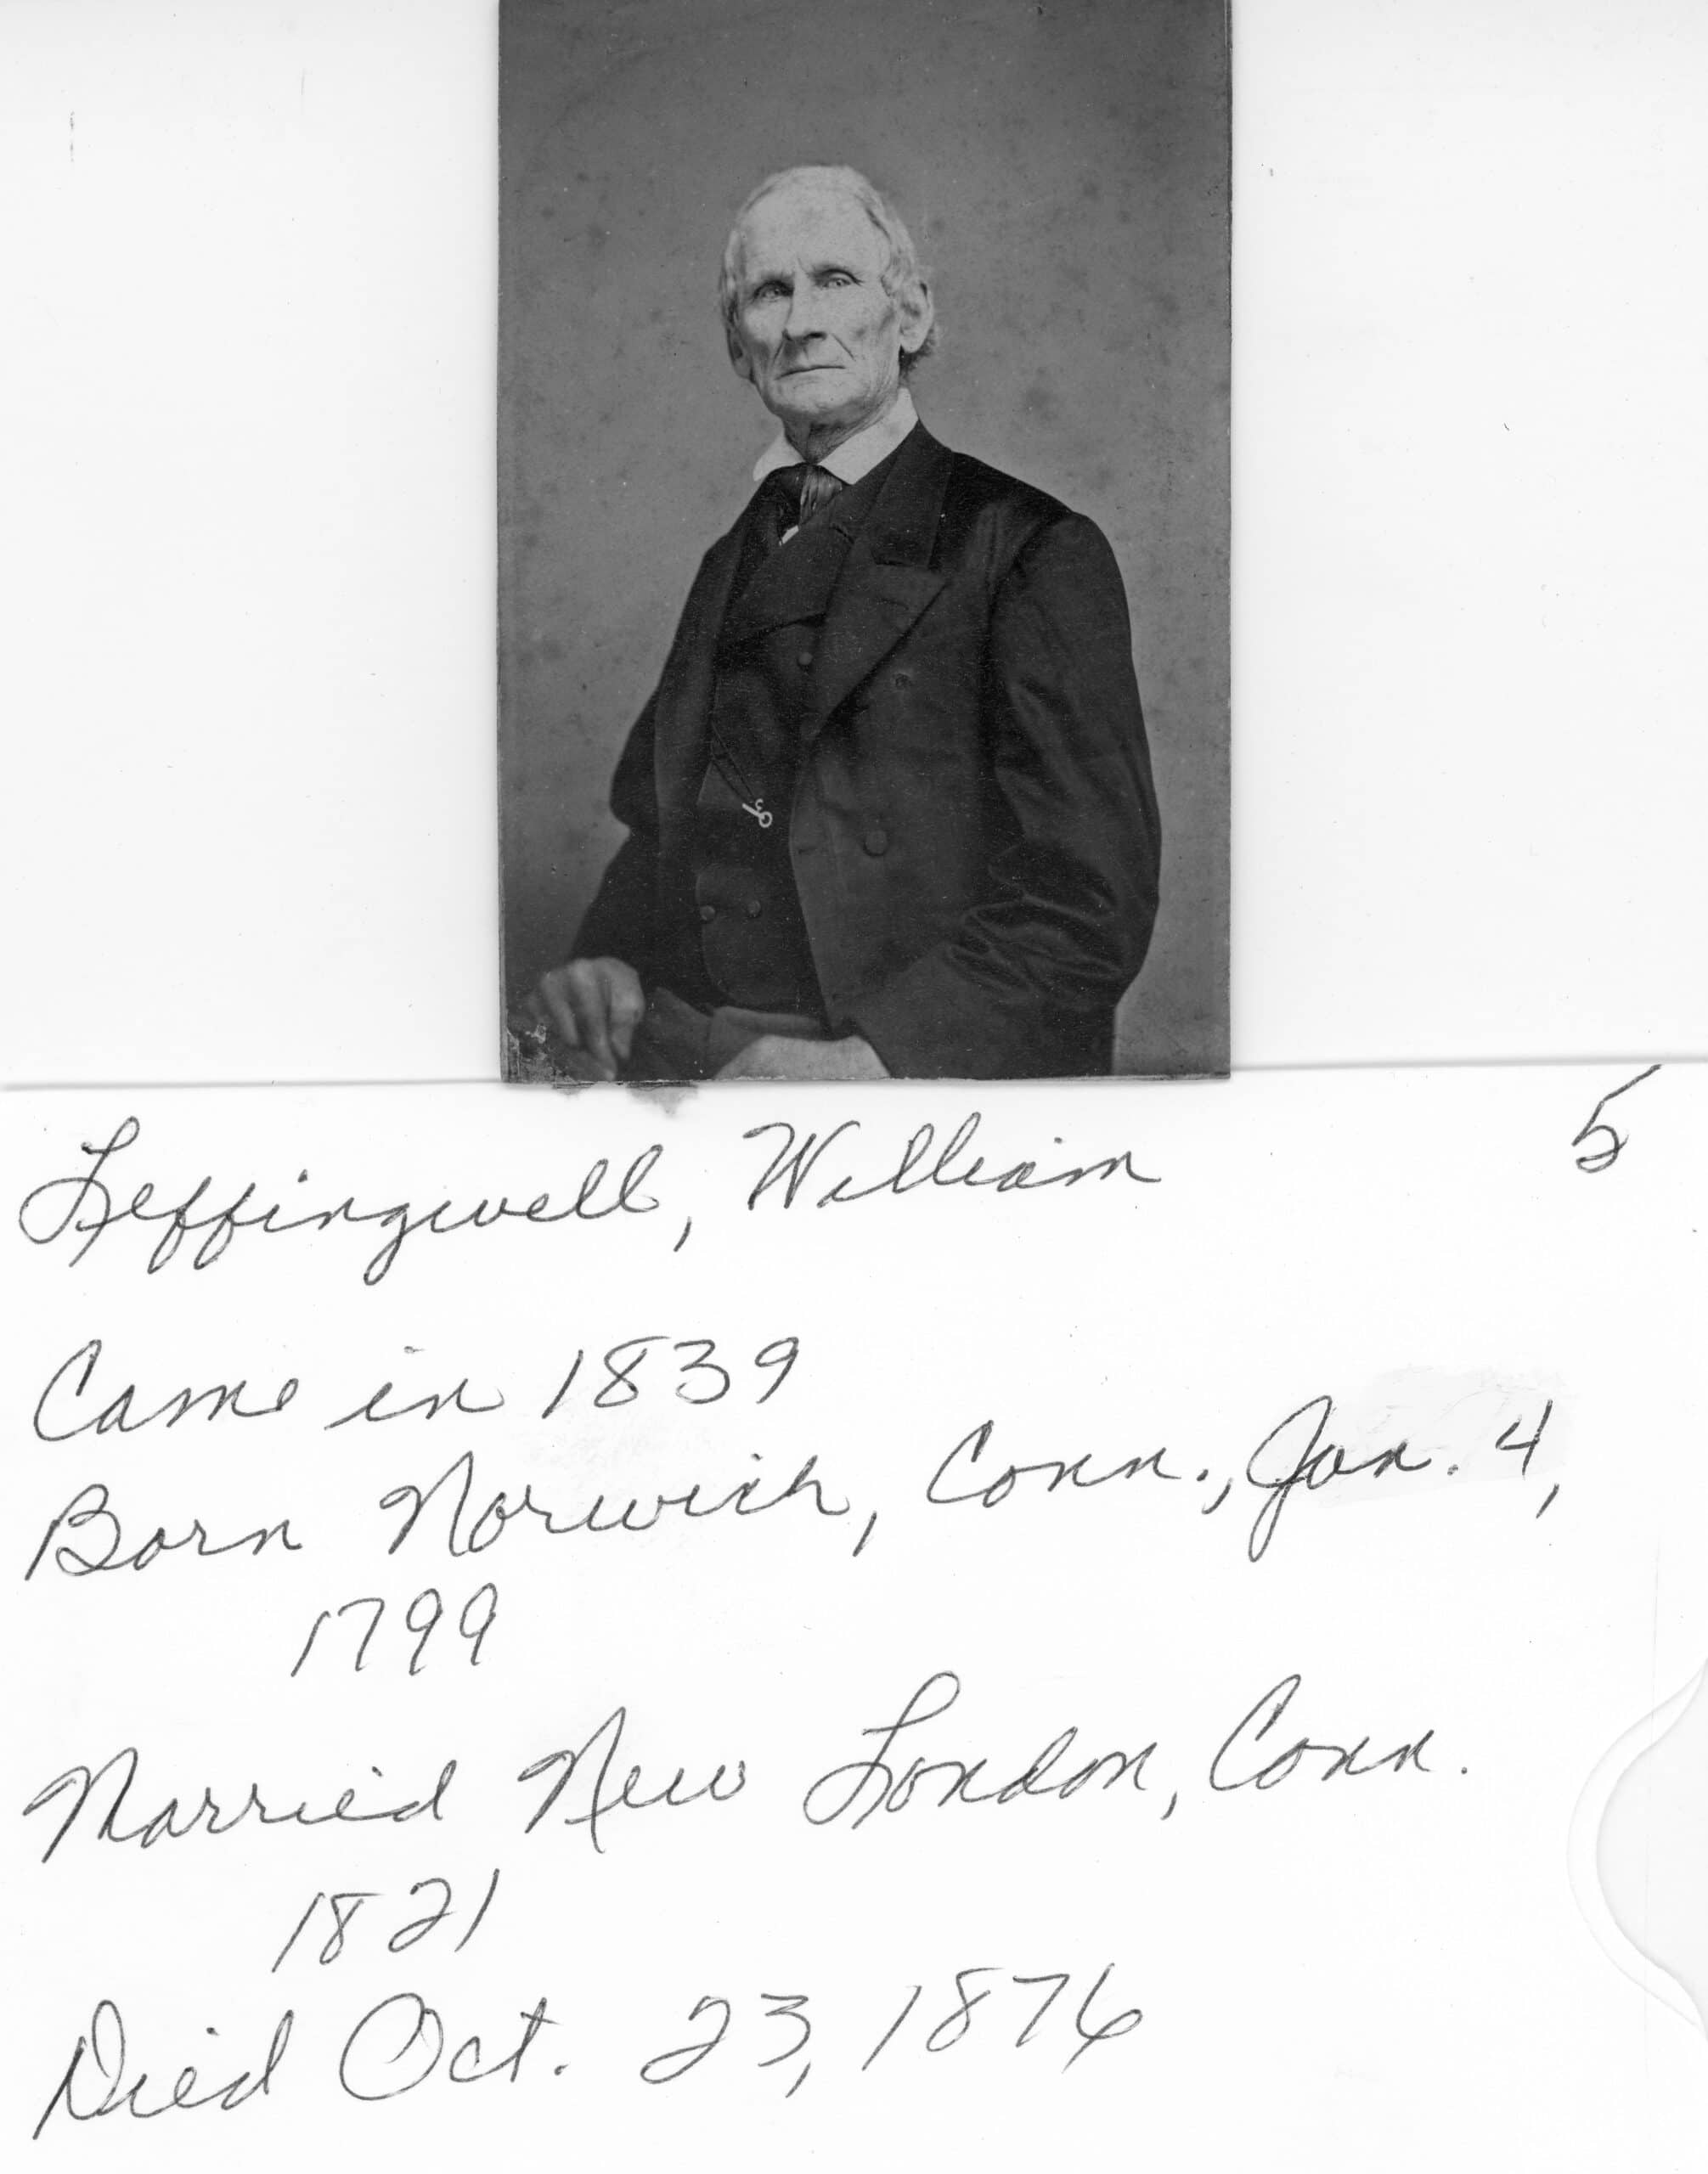 Leffingwell, William 5
Came in 1839
Born Norwich, Conn., Jan. 4,
1799
Married New London, Conn.
1821
Died Oct. 23, 1876